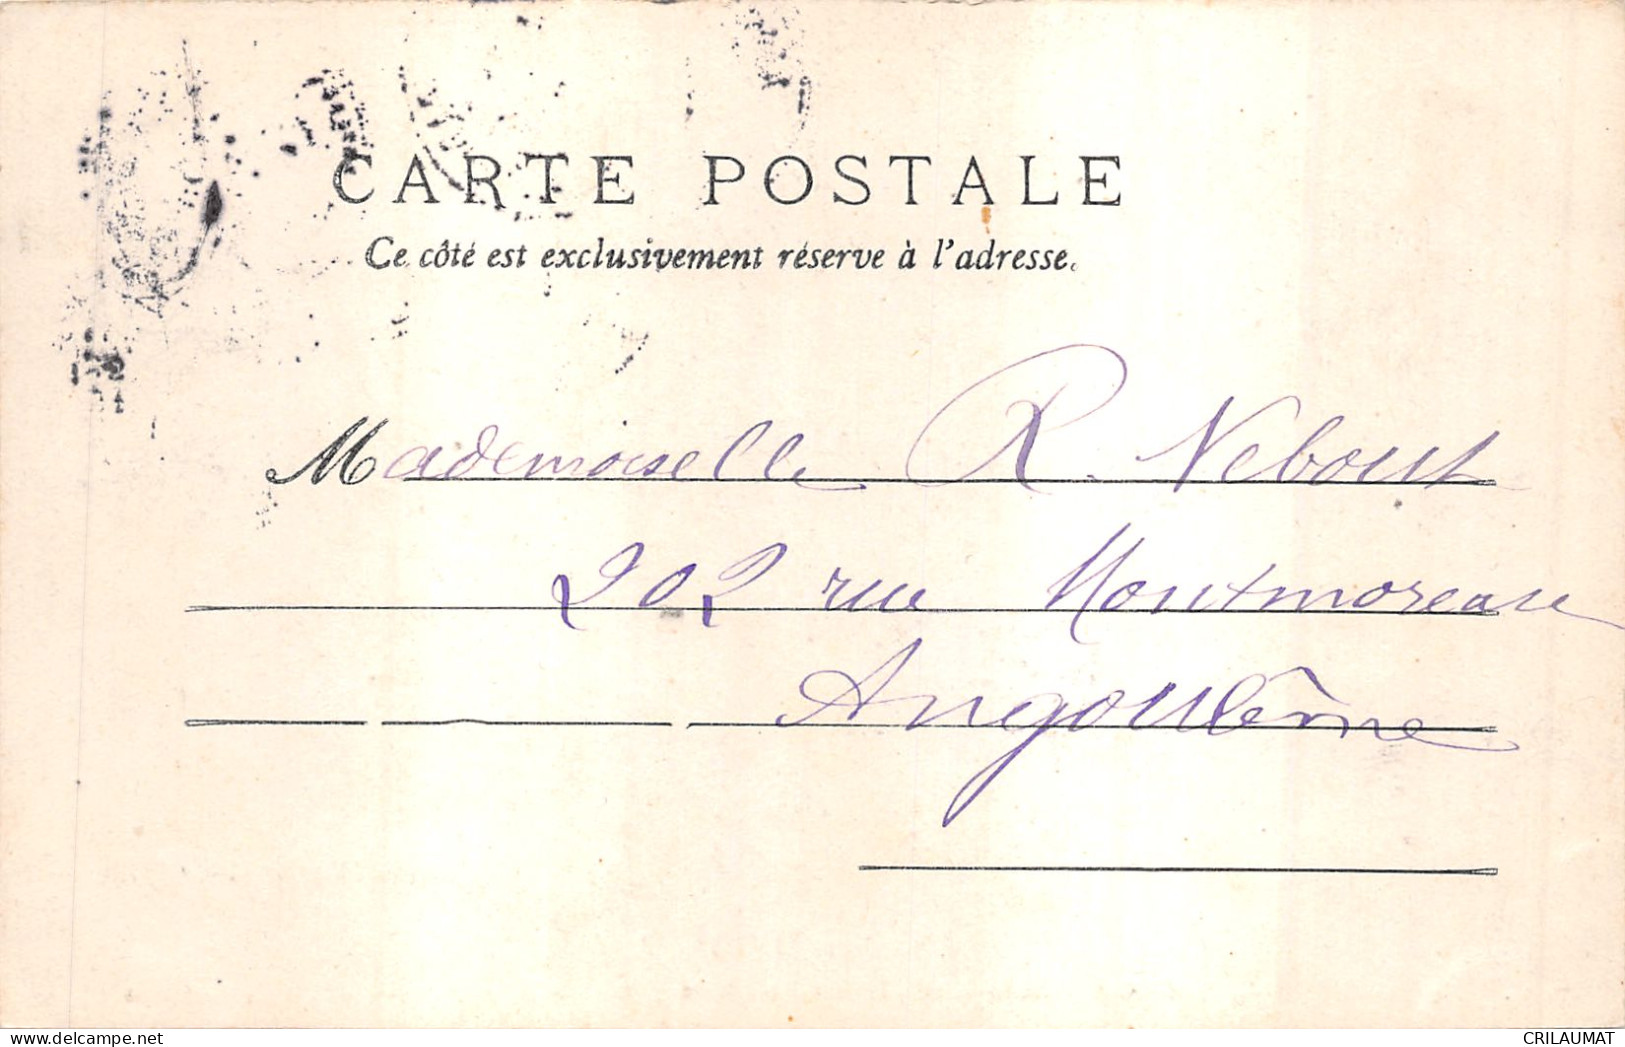 CARTE POSTALE
Ce côté est exclusivement réservé à l'adresse.
Mademoiselle R. Nebout
202 rue Montmoreau
Angoulême
CRILAUMAT